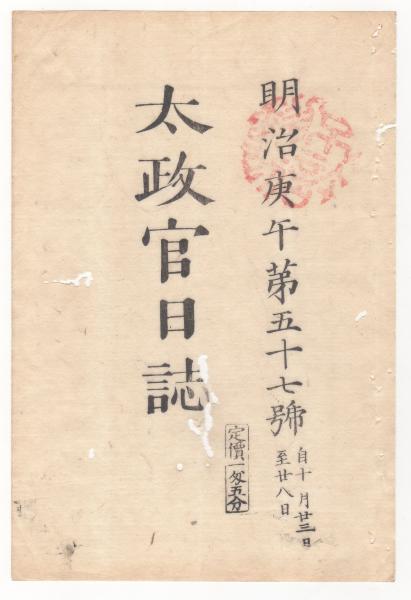 明治庚午第五十七號
自十月廿三日
至廿八日
太政官日誌
定價一匁五分